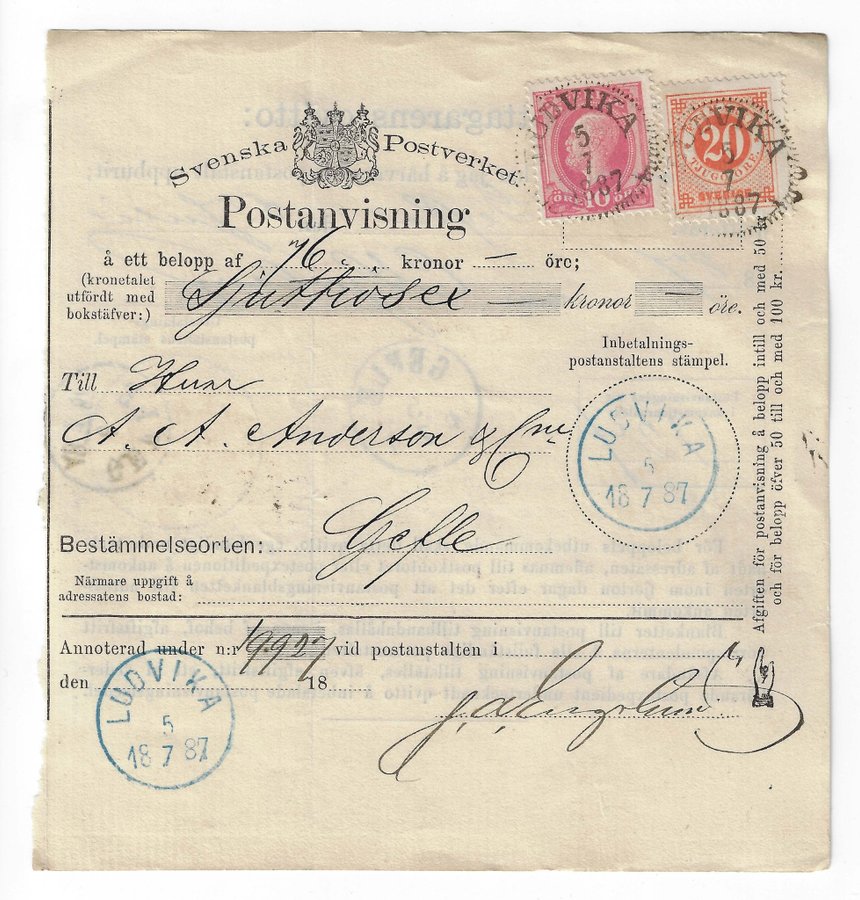 Svenska Postverket.
Postanvisning
å ett belopp af 76 kronor — öre;
(kronetalet
utfördt med
bokstäfver:)
Sjuttiosex — kronor — öre.
Inbetalnings-
postanstaltens stämpel.
Till Herr
A. A. Anderson & Cni
Bestämmelseorten: Gefle
Närmare uppgift å
adressatens bostad:
Annoterad under n:r 9927 vid postanstalten i
den 18
LUDVIKA
5
7
1887
10
ÖRE
LUDVIKA
5
7
1887
20
TJUGO ÖRE
SVERIGE
LUDVIKA
5
18 7 87
LUDVIKA
5
18 7 87
Afgiften för postanvisning å belopp intill och med 50 kr.
och för belopp öfver 50 till och med 100 kr.